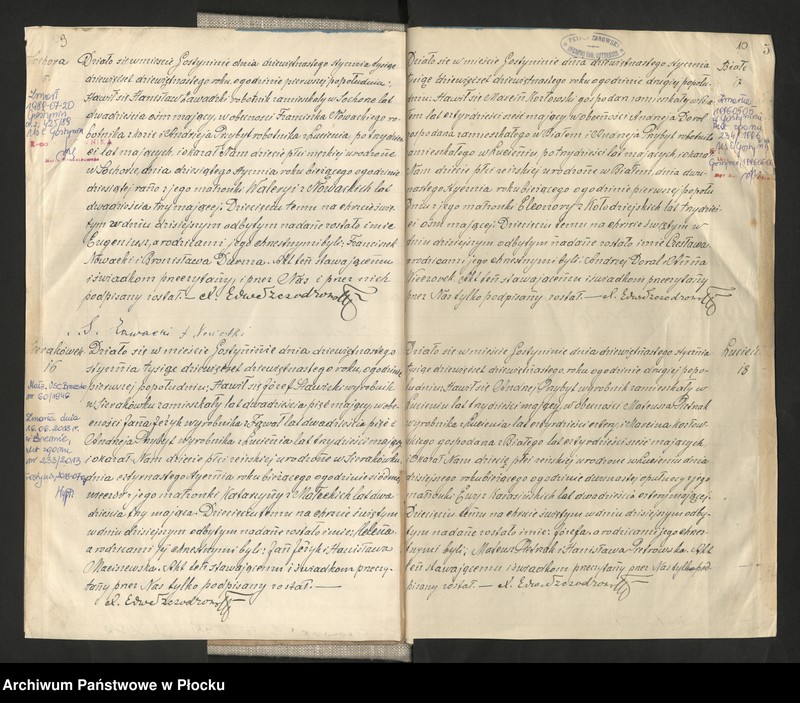 9
Sochora
Działo się w mieście Gostyninie dnia dziewiętnastego stycznia tysiąc
dziewięćset dziewiętnastego roku o godzinie pierwszej popołudniu.
Stawił się Stanisław Zawadzki robotnik zamieszkały w Sochorze lat
dwadzieścia ośm mający, w obecności Franciszka Nowackiego ro-
botnika z and Andrzeja Przybył robotnika z Łucienia po trzydzie-
ści lat mających, i okazał Nam dziecię płci męzkiej urodzone
w Sochorze dnia dziesiątego stycznia roku bieżącego o godzinie
dziesiątej rano z jego małżonki Walerji z Nowackich lat
dwadzieścia trzy mającej. Dziecięciu temu na chrzcie świę-
tym w dniu dzisiejszym odbytym nadane zostało imię
Eugeniusz, a rodzicami jego chrestnymi byli: Franciszek
Nowacki i Bronisława Durma. Akt ten stawającemu
i świadkom przeczytany, i przez Nas i przez nich
podpisany został. — X. Edw. Szczodrowski
S. Zawacki F Nowacki
Zmarł
1988-07-20
Gostynin
Sierakówek
16
Działo się w mieście Gostyninie dnia dziewiętnastego
stycznia tysiąc dziewięćset dziewiętnastego roku, o godzinie
pierwszej popołudniu: Stawił się Józef wyrobnik
w Sierakówku zamieszkały lat dwadzieścia pięć mający, w obe-
cności Jana Jeżyk wyrobnika z lat dwadzieścia pięć i
Andrzeja Przybył wyrobnika z Łucienia lat trzydzieści mających
i okazał Nam dziecię płci żeńskiej urodzone w Sierakówku,
dnia czternastego stycznia roku bieżącego o godzinie siódmej
wieczór z jego małżonki Katarzyny z Małeckich lat dwa-
dzieścia trzy mająca. Dziecięciu temu na chrzcie świętym
w dniu dzisiejszym odbytym nadane zostało imię: Helena,
a rodzicami jej chrestnymi byli: Jan Jeżyk i Stanisława
Maciszewska. Akt ten stawającemu i świadkom przeczy-
tany przez Nas tylko podpisany został. —
X. Edw. Szczodrowski
nr 60/1946
Zmarła dnia
nr 233/2013
10
Białe
17
Działo się w mieście Gostyninie dnia dziewiętnastego stycznia
tysiąc dziewięćset dziewiętnastego roku o godzinie drugiej popołu-
dniu: Stawił się Marcin Kozłowski gospodarz zamieszkały w Bia-
łem lat czterdzieści sześć mający w obecności Andrzeja Doral
gospodarza zamieszkałego w Białem i Andrzeja Przybył robotnika
zamieszkałego w Łucieniu po trzydzieści lat mających, i okazał
Nam dziecię płci żeńskiej urodzone w Białem, dnia dwu-
nastego stycznia roku bieżącego o godzinie pierwszej popołu-
dniu z jego małżonki Eleonory z Kołodziejskich lat trzydzie-
ści ośm mającej. Dziecięciu temu na chrzcie świętym w
dniu dzisiejszym odbytym nadane zostało imię Czesława,
a rodzicami jego chrestnymi byli: Andrzej Doral i Anna
Wieczorek. Akt ten stawającemu i świadkom przeczytany
przez Nas tylko podpisany został — X. Edw. Szczodrowski
Zmarła
1986.05.05
w Gostyninie
akt zgonu
Łucień
18
Działo się w mieście Gostyninie dnia dziewiętnastego stycznia
tysiąc dziewięćset dziewiętnastego roku o godzinie drugiej popo-
łudniu: Stawił się Andrzej Przybył wyrobnik zamieszkały w
Łucieniu lat trzydzieści mający, w obecności Mateusza
wyrobnika z Łucienia lat czterdzieści cztery, i Marcina Kozłow-
skiego gospodarza z Białego lat czterdzieści sześć mających.
i okazał Nam dziecię płci żeńskiej urodzone w Łucieniu dnia
dzisiejszego roku bieżącego o godzinie dwunastej z jego
małżonki Ewy z lat dwadzieścia cztery mającej.
Dziecięciu temu na chrzcie świętym w dniu dzisiejszym odby-
tym nadane zostało imię: Józefa, a rodzicami jego chrest-
nymi byli: Mateusz i Stanisława Piotrowska. Akt
ten stawającemu i świadkom przeczytany przez Nas tylko pod-
pisany został — X. Edw. Szczodrowski
Archiwum Państwowe w Płocku